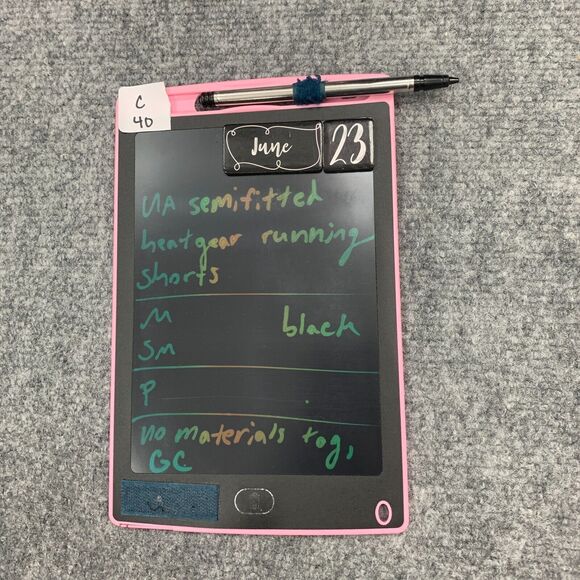 C
40
June 23
UA semifitted
heatgear running
shorts
M black
Sm
P
no materials tag,
GC